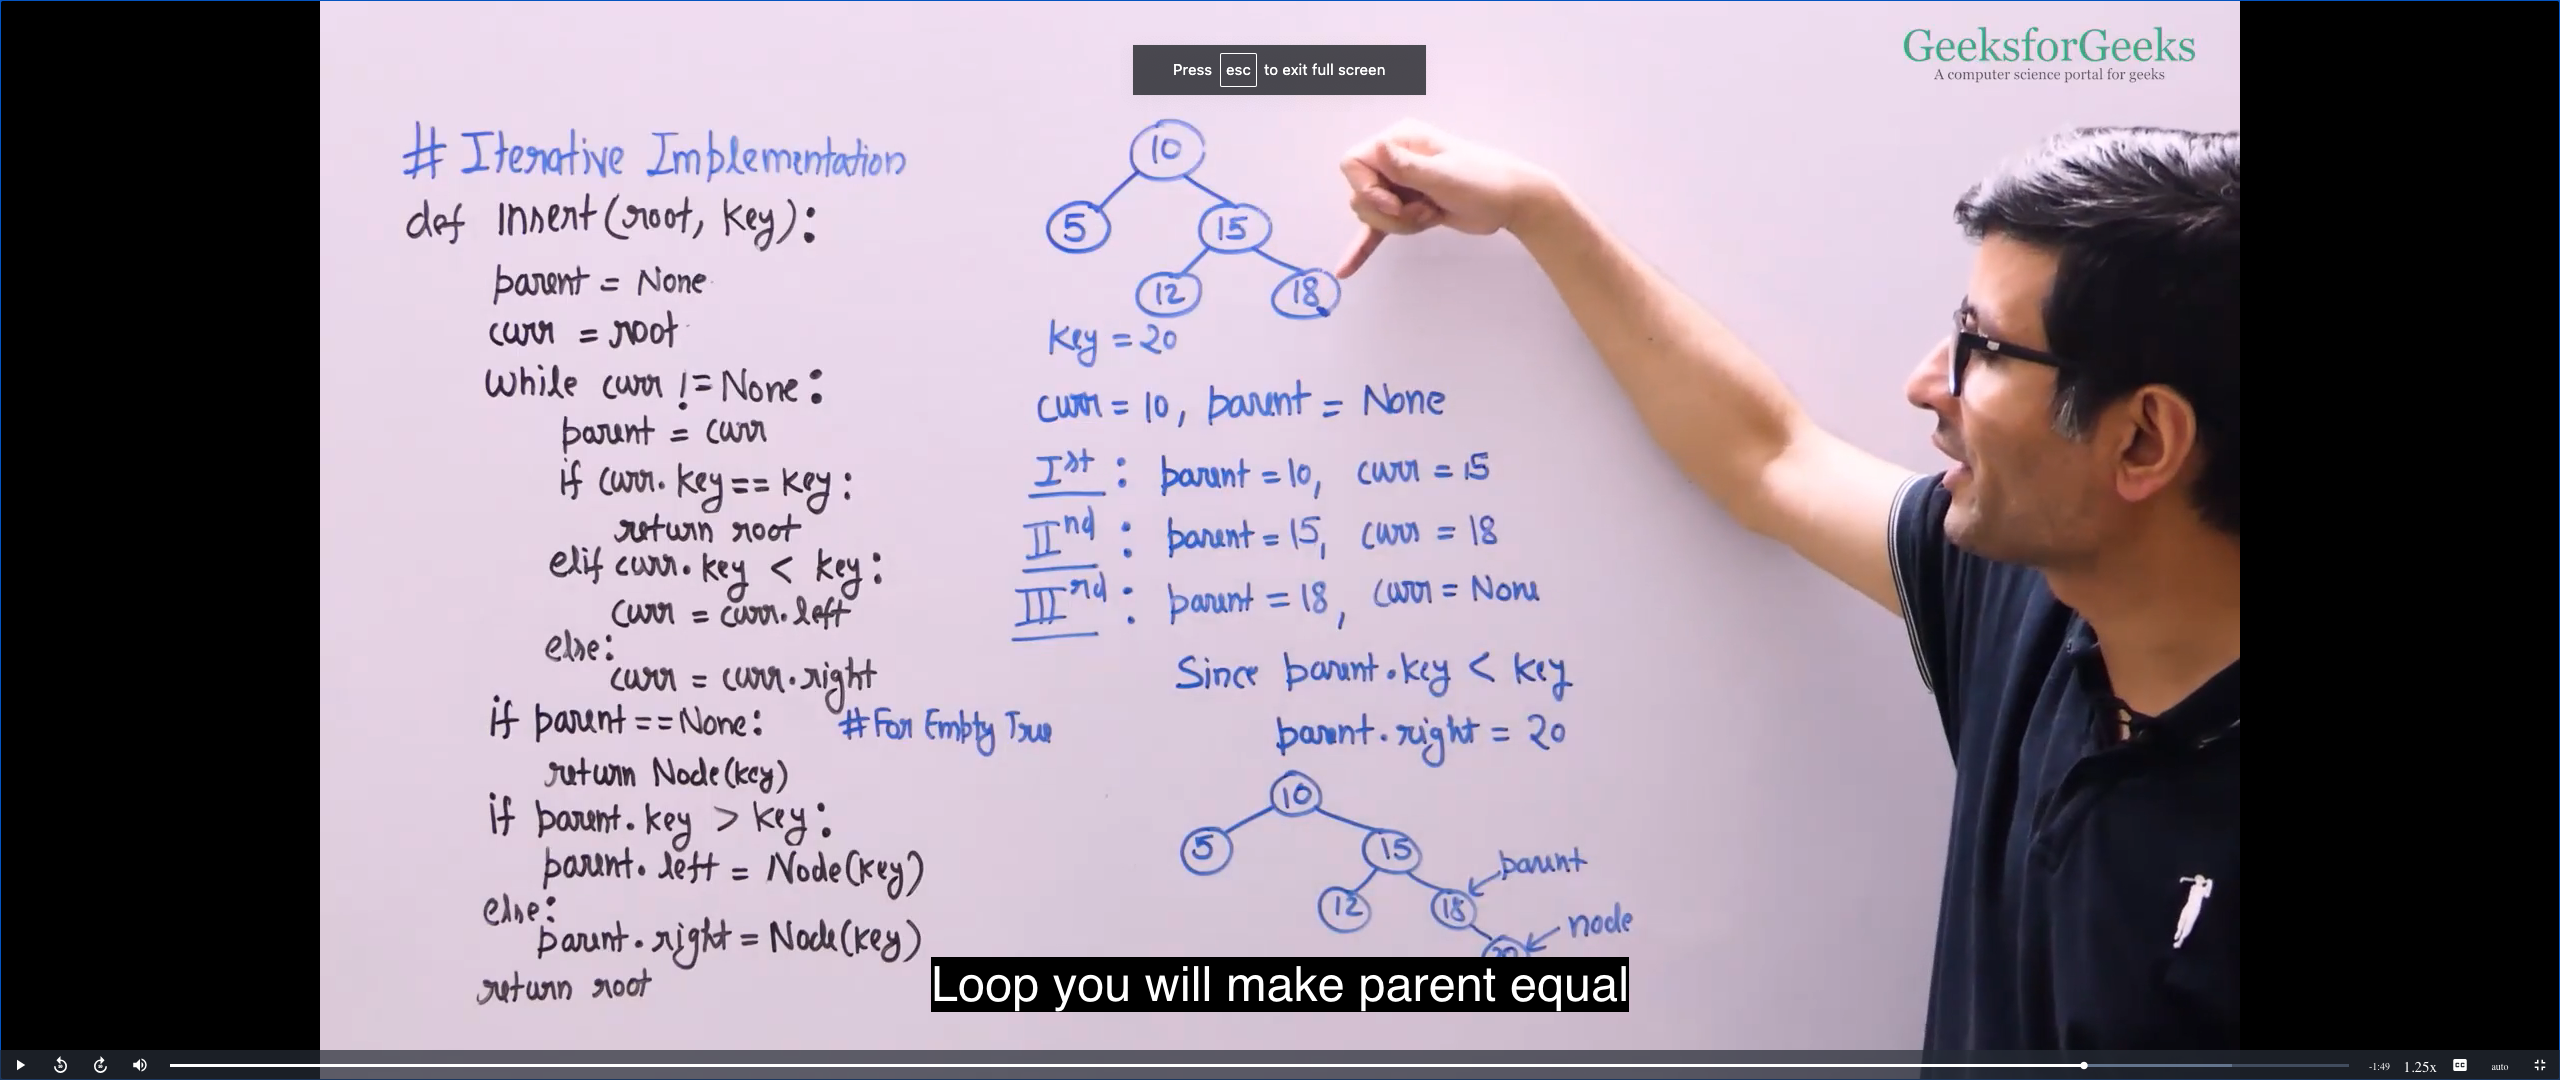 GeeksforGeeks
A computer science portal for geeks
Press esc to exit full screen
# Iterative Implementation
def insert(root, key):
parent = None
curr = root
while curr != None:
parent = curr
if curr.key == key:
return root
elif curr.key < key:
curr = curr.left
else:
curr = curr.right
if parent == None: # For Empty Tree
return Node(key)
if parent.key > key:
parent.left = Node(key)
else:
parent.right = Node(key)
return root
10
5
15
12
18
key = 20
curr = 10, parent = None
Ist : parent = 10, curr = 15
IInd : parent = 15, curr = 18
IIIrd : parent = 18, curr = None
Since parent.key < key
parent.right = 20
10
5
15
parent
12
18
node
20
Loop you will make parent equal
-1:49
1.25x
CC
auto